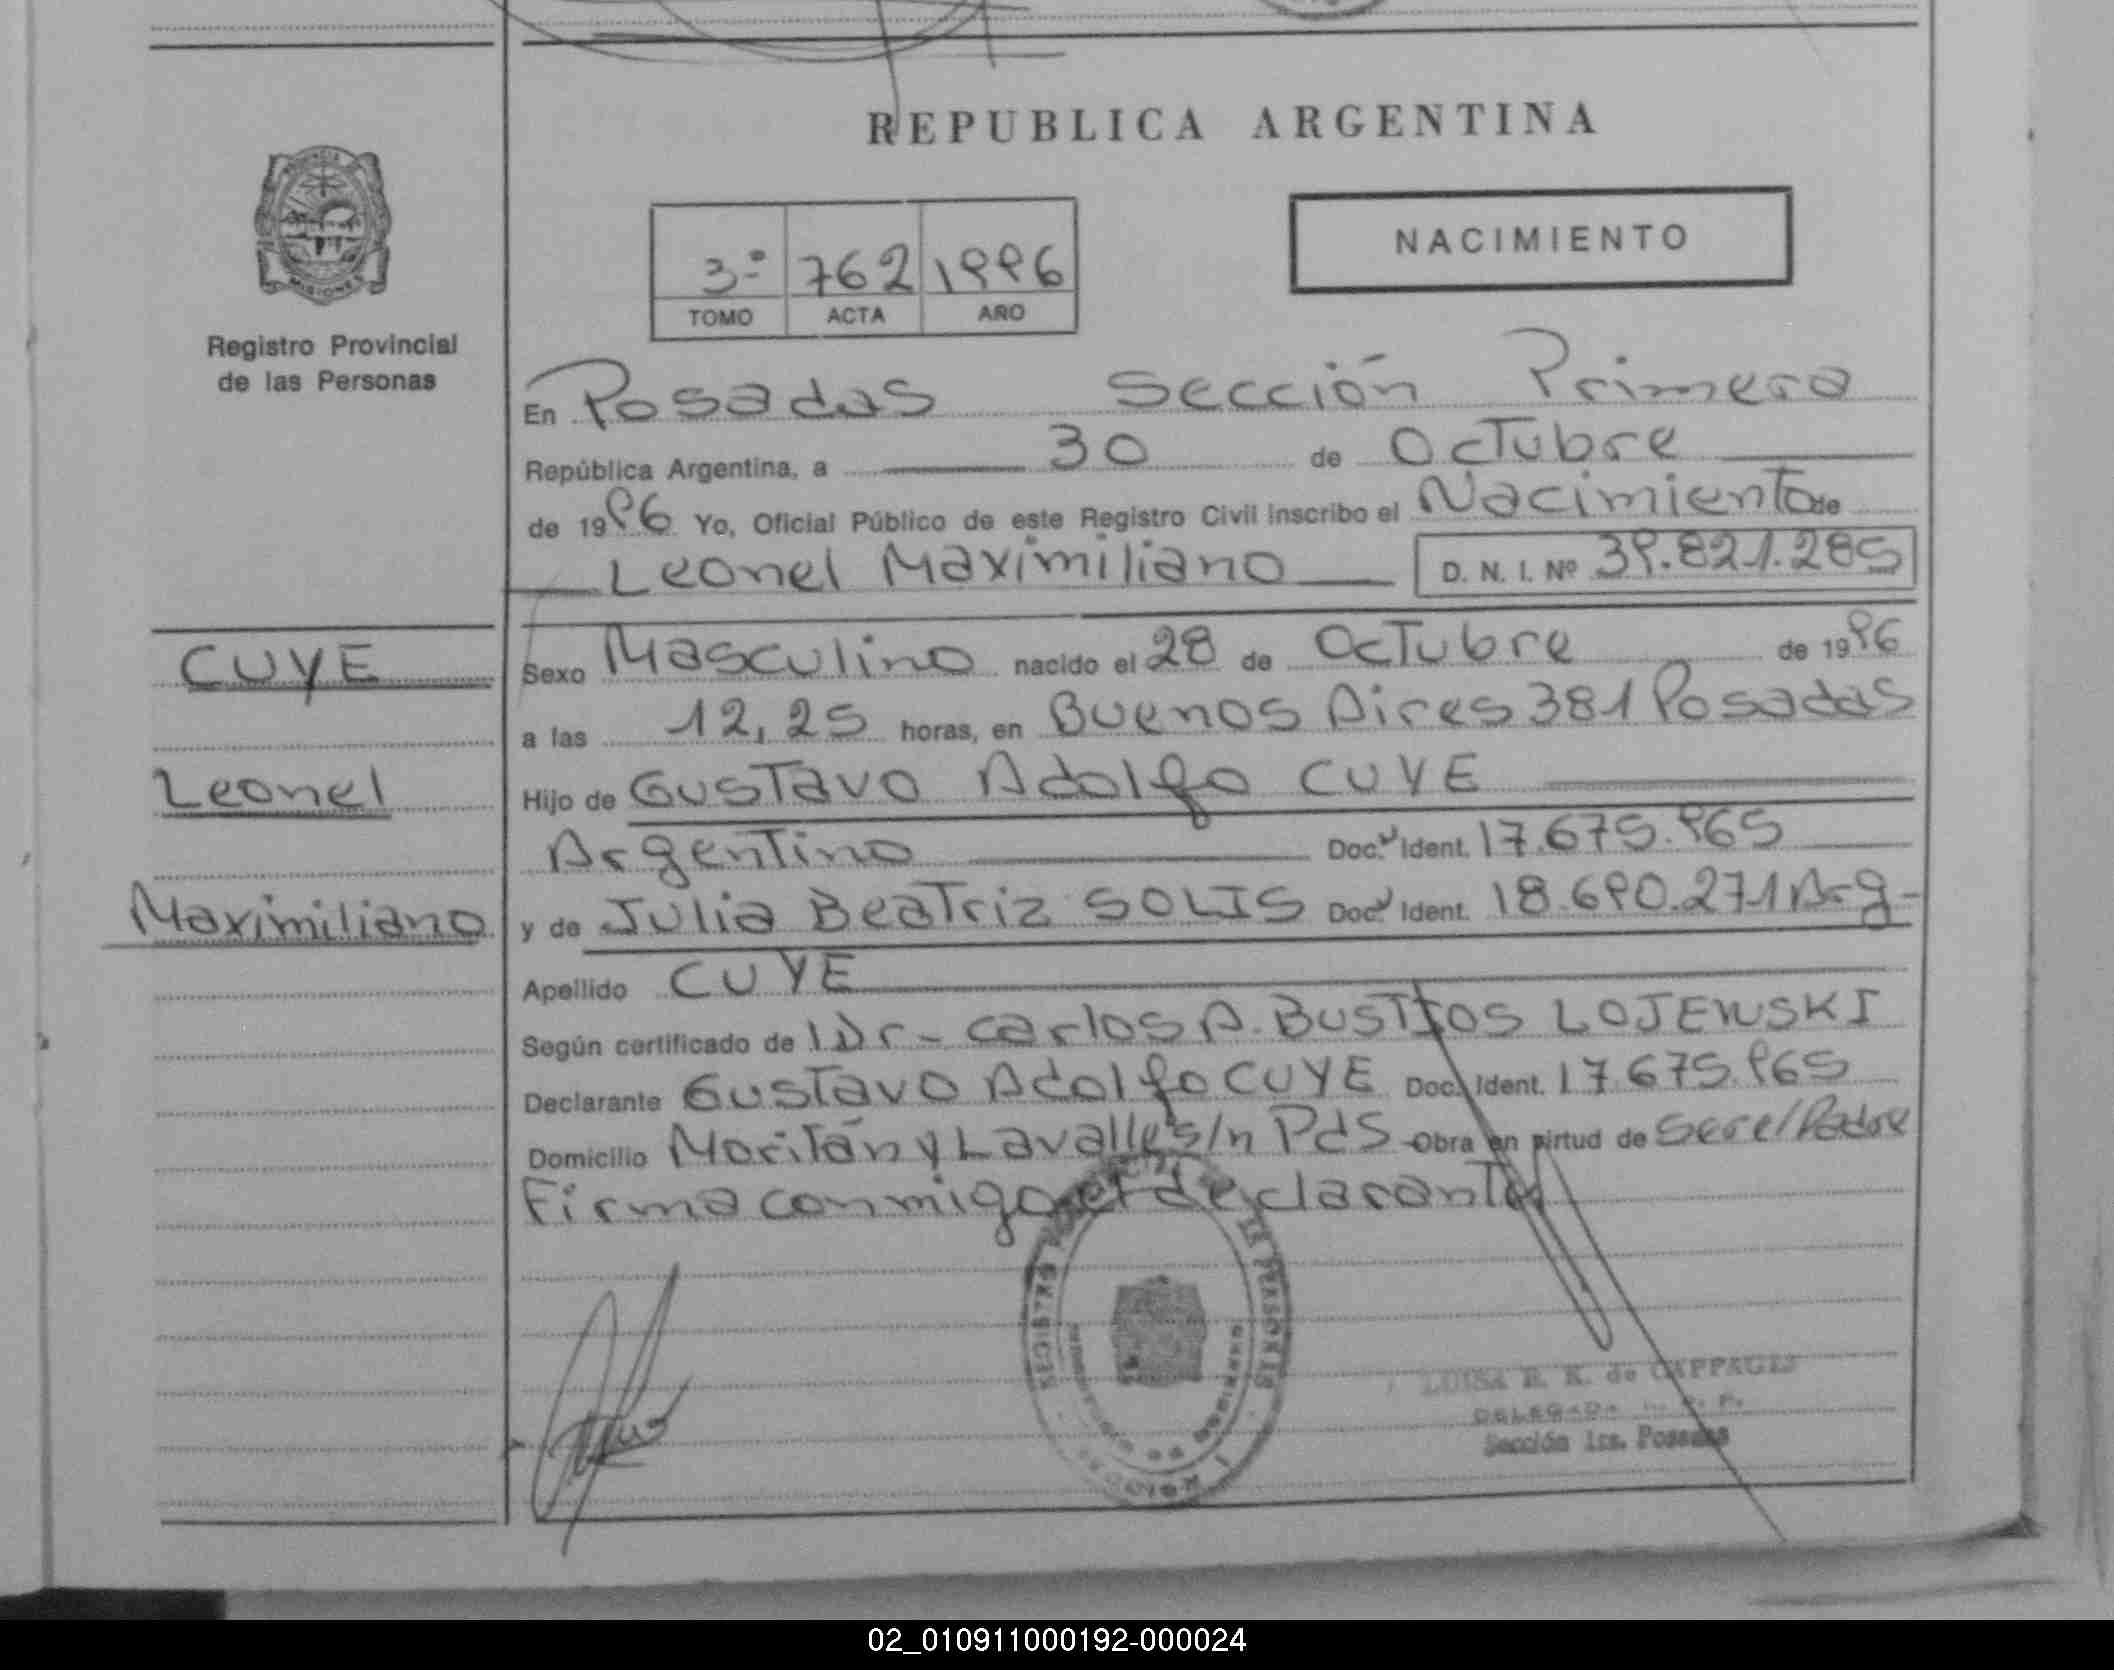 REPUBLICA ARGENTINA
3º 762 1996
TOMO ACTA AÑO
NACIMIENTO
MISIONES
Registro Provincial
de las Personas
En Posadas Sección Primera
República Argentina, a 30 de Octubre
de 1996 Yo, Oficial Público de este Registro Civil inscribo el Nacimiento de
Leonel Maximiliano D. N. I. Nº 39.821.285
CUYE
Leonel
Maximiliano
Sexo Masculino nacido el 28 de Octubre de 1996
a las 12,25 horas, en Buenos Aires 381 Posadas
Hijo de Gustavo Adolfo CUYE
Argentino Doc. Ident. 17.675.965
y de Julia Beatriz SOLIS Doc. Ident. 18.690.271 Arg-
Apellido CUYE
Según certificado de Dr- Carlos A. BUSTOS LOJEWSKI
Declarante Gustavo Adolfo CUYE Doc. Ident. 17.675.965
Domicilio Moritán y Lavalle s/n Pds Obra en virtud de ser el Padre
Firma conmigo el declarante
LUISA R. K. de
DELEGADA
Sección 1ra. Posadas
02_010911000192-000024